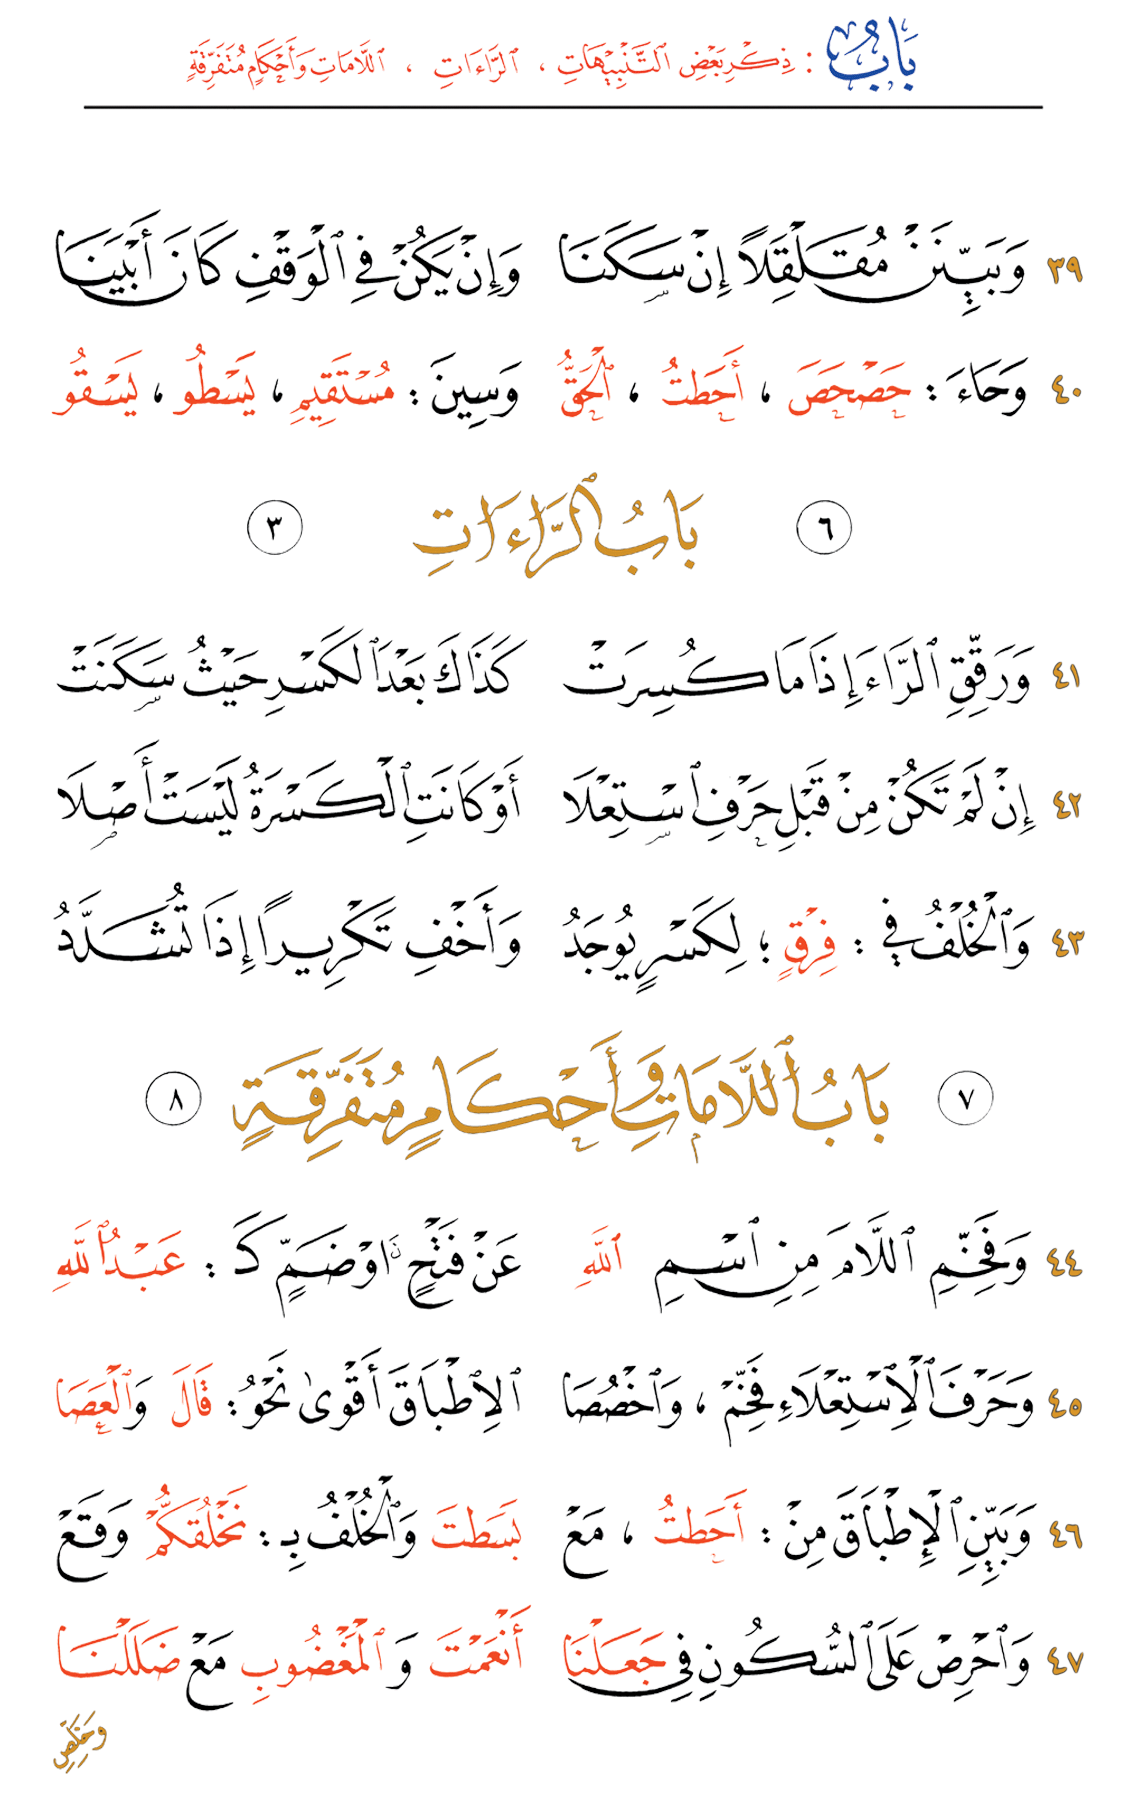 بَابُ : ذِكْرِ بَعْضِ ٱلتَّنْبِيْهَاتِ ، ٱلرَّاءَاتِ ، ٱللَّامَاتِ وَأَحْكَامٍ مُتَفَرِّقَةٍ
٣٩ وَبَيِّنَنْ مُقَلْقَلًا إِنْ سَكَنَا وَإِنْ يَكُنْ فِي ٱلْوَقْفِ كَانَ أَبْيَنَا
٤٠ وَحَاءَ : حَصْحَصَ ، أَحَطتُ ، ٱلْحَقُّ وَسِينَ : مُسْتَقِيمِ ، يَسْطُو ، يَسْقُو
٦ بَابُ ٱلرَّاءَاتِ ٣
٤١ وَرَقِّقِ ٱلرَّاءَ إِذَا مَا كُسِرَتْ كَذَاكَ بَعْدَ ٱلْكَسْرِ حَيْثُ سَكَنَتْ
٤٢ إِنْ لَمْ تَكُنْ مِنْ قَبْلِ حَرْفِ ٱسْتِعْلَا أَوْ كَانَتِ ٱلْكَسْرَةُ لَيْسَتْ أَصْلَا
٤٣ وَٱلْخُلْفُ فِي : فِرْقٍ ؛ لِكَسْرٍ يُوجَدُ وَأَخْفِ تَكْرِيرًا إِذَا تُشَدَّدُ
٧ بَابُ ٱللَّامَاتِ وَأَحْكَامٍ مُتَفَرِّقَةٍ ٨
٤٤ وَفَخِّمِ ٱللَّامَ مِنِ ٱسْمِ ٱللَّهِ عَنْ فَتْحٍ ٱوْ ضَمٍّ كَـ : عَبْدُ ٱللَّهِ
٤٥ وَحَرْفَ ٱلِٱسْتِعْلَاءِ فَخِّمْ ، وَٱخْصُصَا ٱلِاطْبَاقَ أَقْوَىٰ نَحْوُ : قَالَ وَٱلْعَصَا
٤٦ وَبَيِّنِ ٱلْإِطْبَاقَ مِنْ : أَحَطتُ ، مَعْ بَسَطتَ وَٱلْخُلْفُ بِـ : نَخْلُقكُّمْ وَقَعْ
٤٧ وَٱحْرِصْ عَلَى ٱلسُّكُونِ فِي جَعَلْنَا أَنْعَمْتَ وَ ٱلْمَغْضُوبِ مَعْ ضَلَلْنَا
وَخَلِّصِ